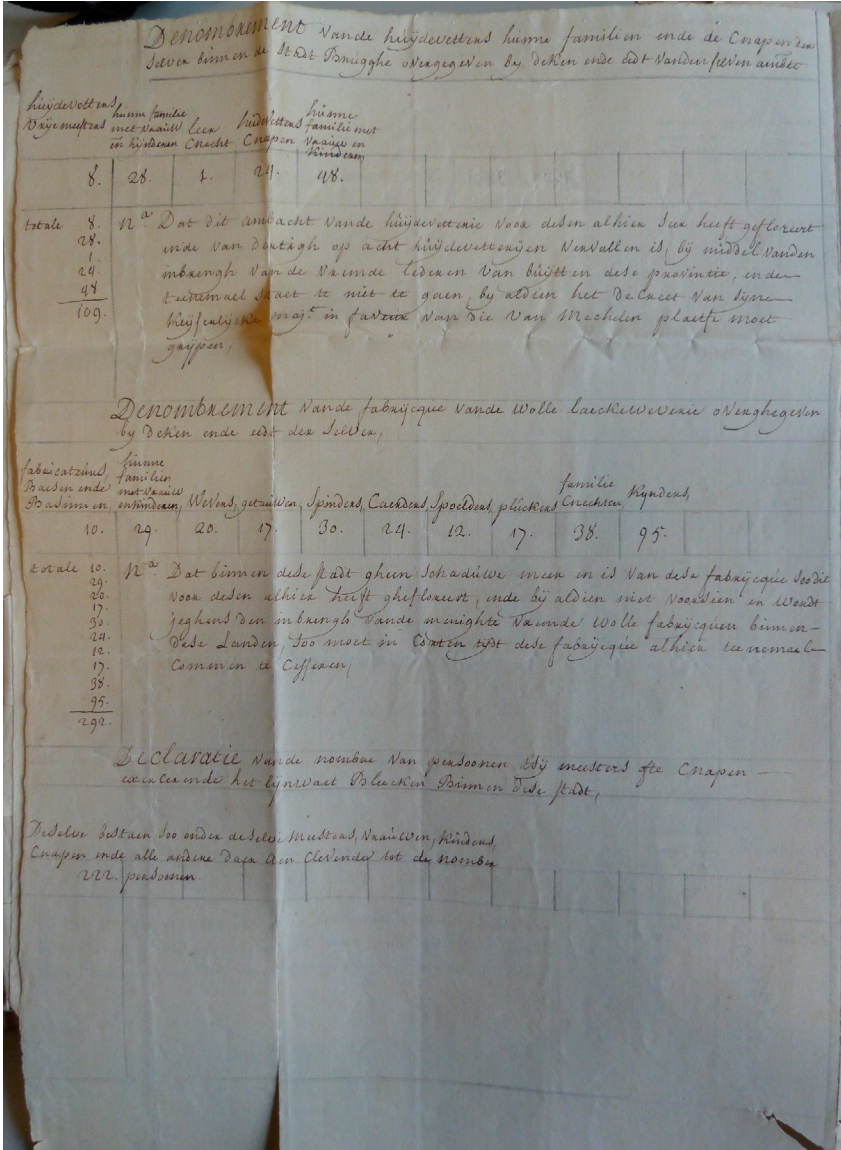 Denombrement vande huijdevetters hunne familien ende de Cnapen der
selver binnen de stadt Brugghe overgegeven by deken ende eedt vanden selven ambte
huijdevetters vrije meesters
hunne familie met vrauw en kijnderen
leer Cnecht
hudevetters Cnapen
hunne familie met vrauw en kinderen
8. 28. 1. 24. 48.
totale 8.
28.
1.
24.
48
109.
Nª. Dat dit ambacht vande huijdevetterie voor desen alhier seer heeft gefloreert
ende van dertigh op acht huijdevetterijen vervallen is, bij middel vanden
inbrengh van de vremde lederen van buijtten dese provintie, ende
teenemael staet te niet te gaen, by aldien het decreet van sijne
keijserlijcke maj.t in faveur van die van Mechelen plaetse moet
grijpen,
Denombrement vande fabrijcque vande wolle laeckeweverie overghegeven
by deken ende eedt der selver,
fabricateurs, Baesen ende Basinnen,
hunne familien met vrauw en kinderen,
Wevers,
getauwen,
Spinders,
Caerders,
Spoelders,
pluckers
familie Cnechten,
Kynders,
10. 29. 20. 17. 30. 24. 12. 17. 38. 95.
totale 10.
29.
20.
17.
30.
24.
12.
17.
38.
95.
292.
Nª. Dat binnen dese stadt gheen schaduwe meer en is van dese fabrijcque soo die
voor desen alhier heeft ghefloreert, ende bij aldien niet voorsien en wordt
jeghens den inbrengh vande menighte vremde wolle fabrijcquen binnen
dese Landen, soo moet in Corten tydt dese fabrijcque alhier teenemael
Commen te Cesseren,
Declaratie vande nombre van persoonen tsij meesters ofte Cnapen
exercerende het lijnwaet Bleecken Binnen dese stadt,
Deselve bestaen soo onder deselve Meesters, vrauwen, kinders,
Cnapen ende alle andere daer aen Clevende tot de nomber
222. persoonen.